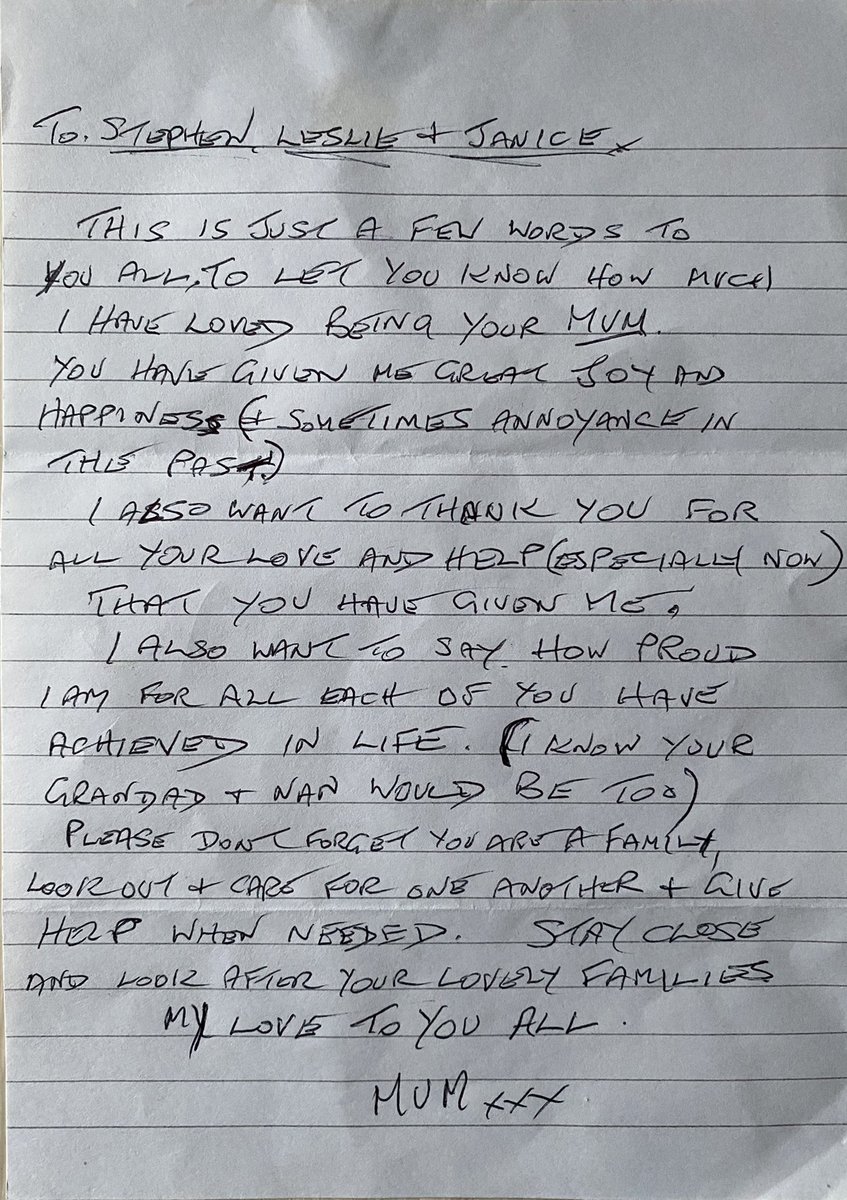 To. STEPHEN, LESLIE + JANICE x
THIS IS JUST A FEW WORDS TO
YOU ALL, TO LET YOU KNOW HOW MUCH
I HAVE LOVED BEING YOUR MUM.
YOU HAVE GIVEN ME GREAT JOY AND
HAPPINESS (+ SOMETIMES ANNOYANCE IN
THE PAST!)
I ALSO WANT TO THANK YOU FOR
ALL YOUR LOVE AND HELP (ESPECIALLY NOW)
THAT YOU HAVE GIVEN ME.
I ALSO WANT TO SAY HOW PROUD
I AM FOR ALL EACH OF YOU HAVE
ACHIEVED IN LIFE. (I KNOW YOUR
GRANDAD + NAN WOULD BE TOO)
PLEASE DONT FORGET YOU ARE A FAMILY,
LOOK OUT + CARE FOR ONE ANOTHER + GIVE
HELP WHEN NEEDED. STAY CLOSE
AND LOOK AFTER YOUR LOVELY FAMILIES
MY LOVE TO YOU ALL.
MUM xxx